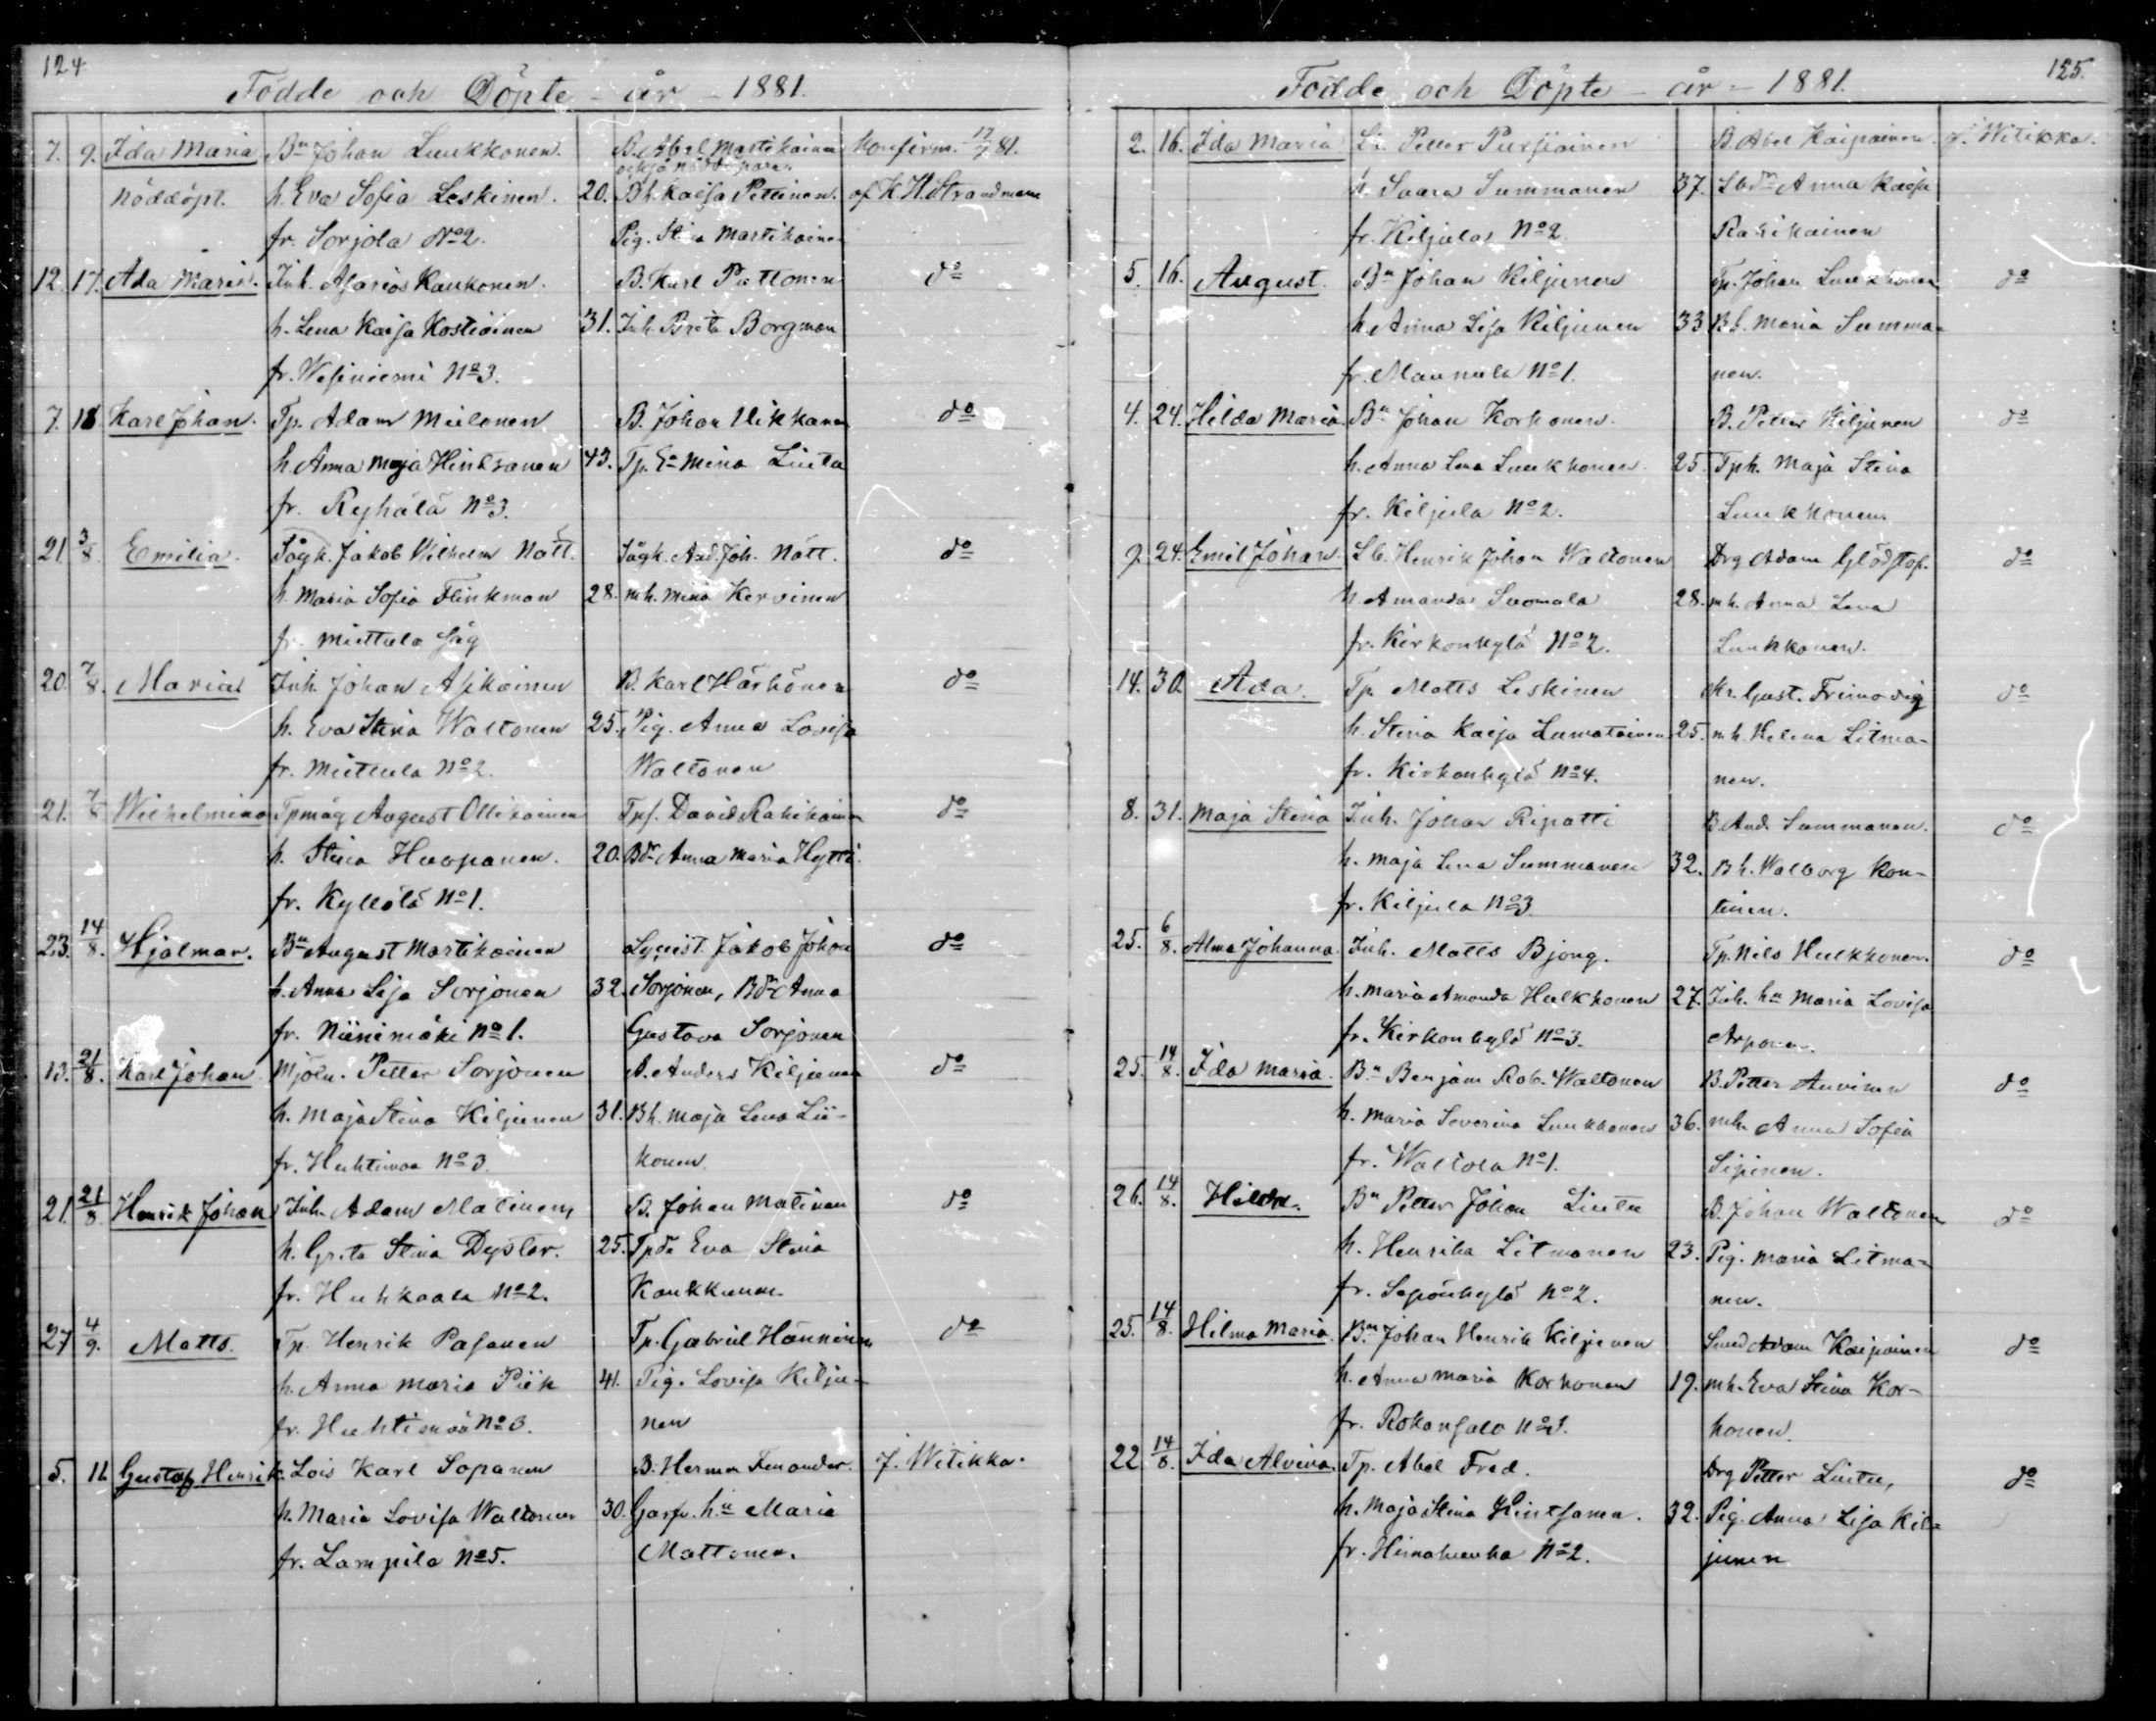 124
Födde och Döpte - år - 1881.
7. 9. Ida Maria Bn Johan Luukkonen. B. Abel Martikainen Konfirm. 17/7 81.
nöddöpt. h. Eva Sofia Leskinen. 20. Bh. Kaisa Pettinen. af K. H. Strandman
fr. Sorjola No 2. Pig. Stina Martikainen
12. 17. Ada Maria. Inh. Asarias Kaukonen. B. Karl Puttonen do
h. Lena Kaisa Kostiainen 31. Inh. Brita Borgman
fr. Wesiniemi No 3.
7. 18 Karl Johan. Tp. Adam Miilonen B. Johan Ukkonen do
h. Anna Maja Hintsanen 43. Tp. Ea Mina Liuta
fr. Reyhälä No 3.
21 3/8. Emilia. Sågk. Jakob Wilhelm Nätt. Sågk. And. Joh. Nätt. do
h. Maria Sofia Flinkman 28. mh. Mina Kervinen
fr. Miettula Såg
20. 7/8. Maria Inh. Johan Asikainen B. Karl Härkönen do
h. Eva Stina Waltonen 25. Pig. Anna Lovisa
fr. Miettula No 2. Waltonen
21. 7/8 Wilhelmina Tpmåg August Ollikainen Tps. David Rahikainen do
h. Stina Huopanen. 20. Bdr Anna Maria Hytti.
fr. Kyllölä No 1.
23. 14/8. Hjalmar. Bn August Martikainen Lyceist. Jakob Johan do
h. Anna Lisa Sorjonen 32. Sorjonen, Bdr Anna
fr. Niinimäki No 1. Gustava Sorjonen
13. 21/8. Karl Johan Mjöln. Petter Sorjonen A. Anders Kiljunen do
h. Maja Stina Kiljunen 31. Bh. Maja Lena Lii-
fr. Huhtimaa No 3. konen.
21. 21/8 Henrik Johan Inh. Adam Matinen B. Johan Matinen do
h. Greta Stina Dyster. 25. Tpda Eva Stina
fr. Huhkaala No 2. Kaukkunen.
27 4/9. Matts. Tp. Henrik Pasanen Tp. Gabriel Hänninen do
h. Anna Maria Piik 41. Pig. Lovisa Kilju-
fr. Huhtimaa No 3. nen
5. 11. Gustaf Henrik. Lois Karl Sopanen B. Herman Fenander. J. Witikka.
h. Maria Lovisa Waltonen 30. Garfv. hu Maria
fr. Lampila No 5. Mattonen.
125.
Födde och Döpte - år - 1881.
2. 16. Ida Maria Petter Pursiainen B. Abel Kaipainen J. Witikka.
h. Saara Summanen 37. Lbdr Anna Kaisa
fr. Kiljula No 2. Rahikainen
5. 16. August. Bn Johan Kiljunen Tp. Johan Luukkonen do
h. Anna Lisa Kiljunen 33 Bh. Maria Summa-
fr. Mannula No 1. nen.
4. 24. Hilda Maria. Bn Johan Korhonen. B. Petter Kiljunen do
h. Anna Lena Luukkonen. 25. Tph. Maja Stina
fr. Kiljula No 2. Luukkonen.
9. 24. Emil Johan. Lb. Henrik Johan Waltonen Drg Adam Glödstaf. do
h. Amanda Suomala 28. mh. Anna Lena
fr. Kirkonkylä No 2. Luukkonen.
14. 30. Ada. Tp. Matts Leskinen Mr. Gust. Frimodig do
h. Stina Kaisa Lumatainen 25. mh. Helena Litma-
fr. Kirkonkylä No 4. nen.
8. 31. Maja Stina Inh. Johan Ripatti B And. Summanen. do
h. Maja Lena Summanen 32. Bh. Walborg Kon-
fr. Kiljula No 3. tinen.
25. 6/8. Alma Johanna. Inh. Matts Bjong. Tp. Nils Hulkkonen. do
h. Maria Amanda Hulkkonen 27. Inh. hu Maria Lovisa
fr. Kirkonkylä No 3. Arponen.
25. 14/8. Ida Maria. Bn Benjam Rob. Waltonen B. Petter Auvinen do
h. Maria Severina Luukkonen 36. mh. Anna Sofia
fr. Waltola No 1. Sipinen.
26. 14/8. Hilda. Bn Petter Johan Liutu B. Johan Waltonen do
h. Henrika Litmanen 23. Pig. Maria Litma-
fr. Sepänkylä No 2. nen.
25. 14/8. Hilma Maria. Bn Johan Henrik Kiljunen Smed Adam Kaipainen do
h. Anna Maria Korhonen 19. mh. Eva Stina Kor-
fr. Rokansalo No 1. honen.
22 14/8. Ida Alvina. Tp. Abel Fred. Drg Petter Liutu, do
h. Maja Stina Hintsanen. 32. Pig. Anna Lisa Kil-
fr. No 2. junen